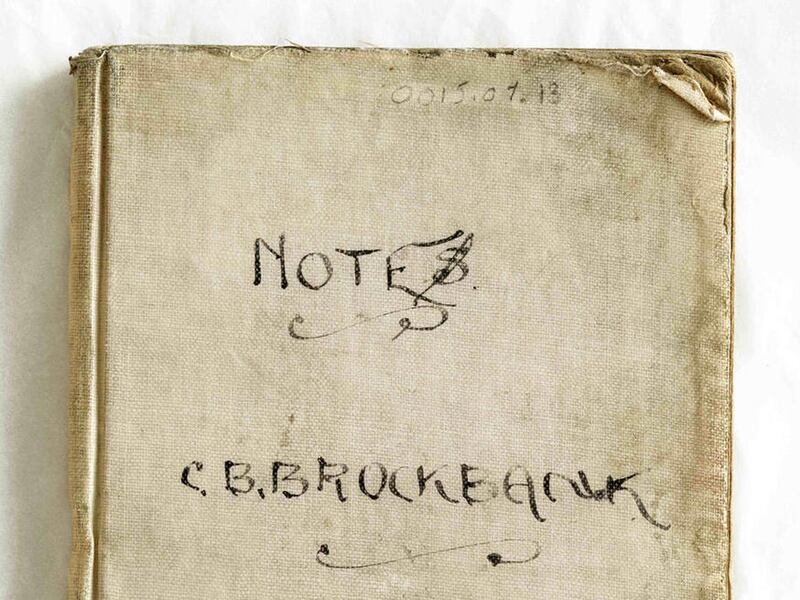 0015.07.13
NOTES.
C.B.BROCKBANK